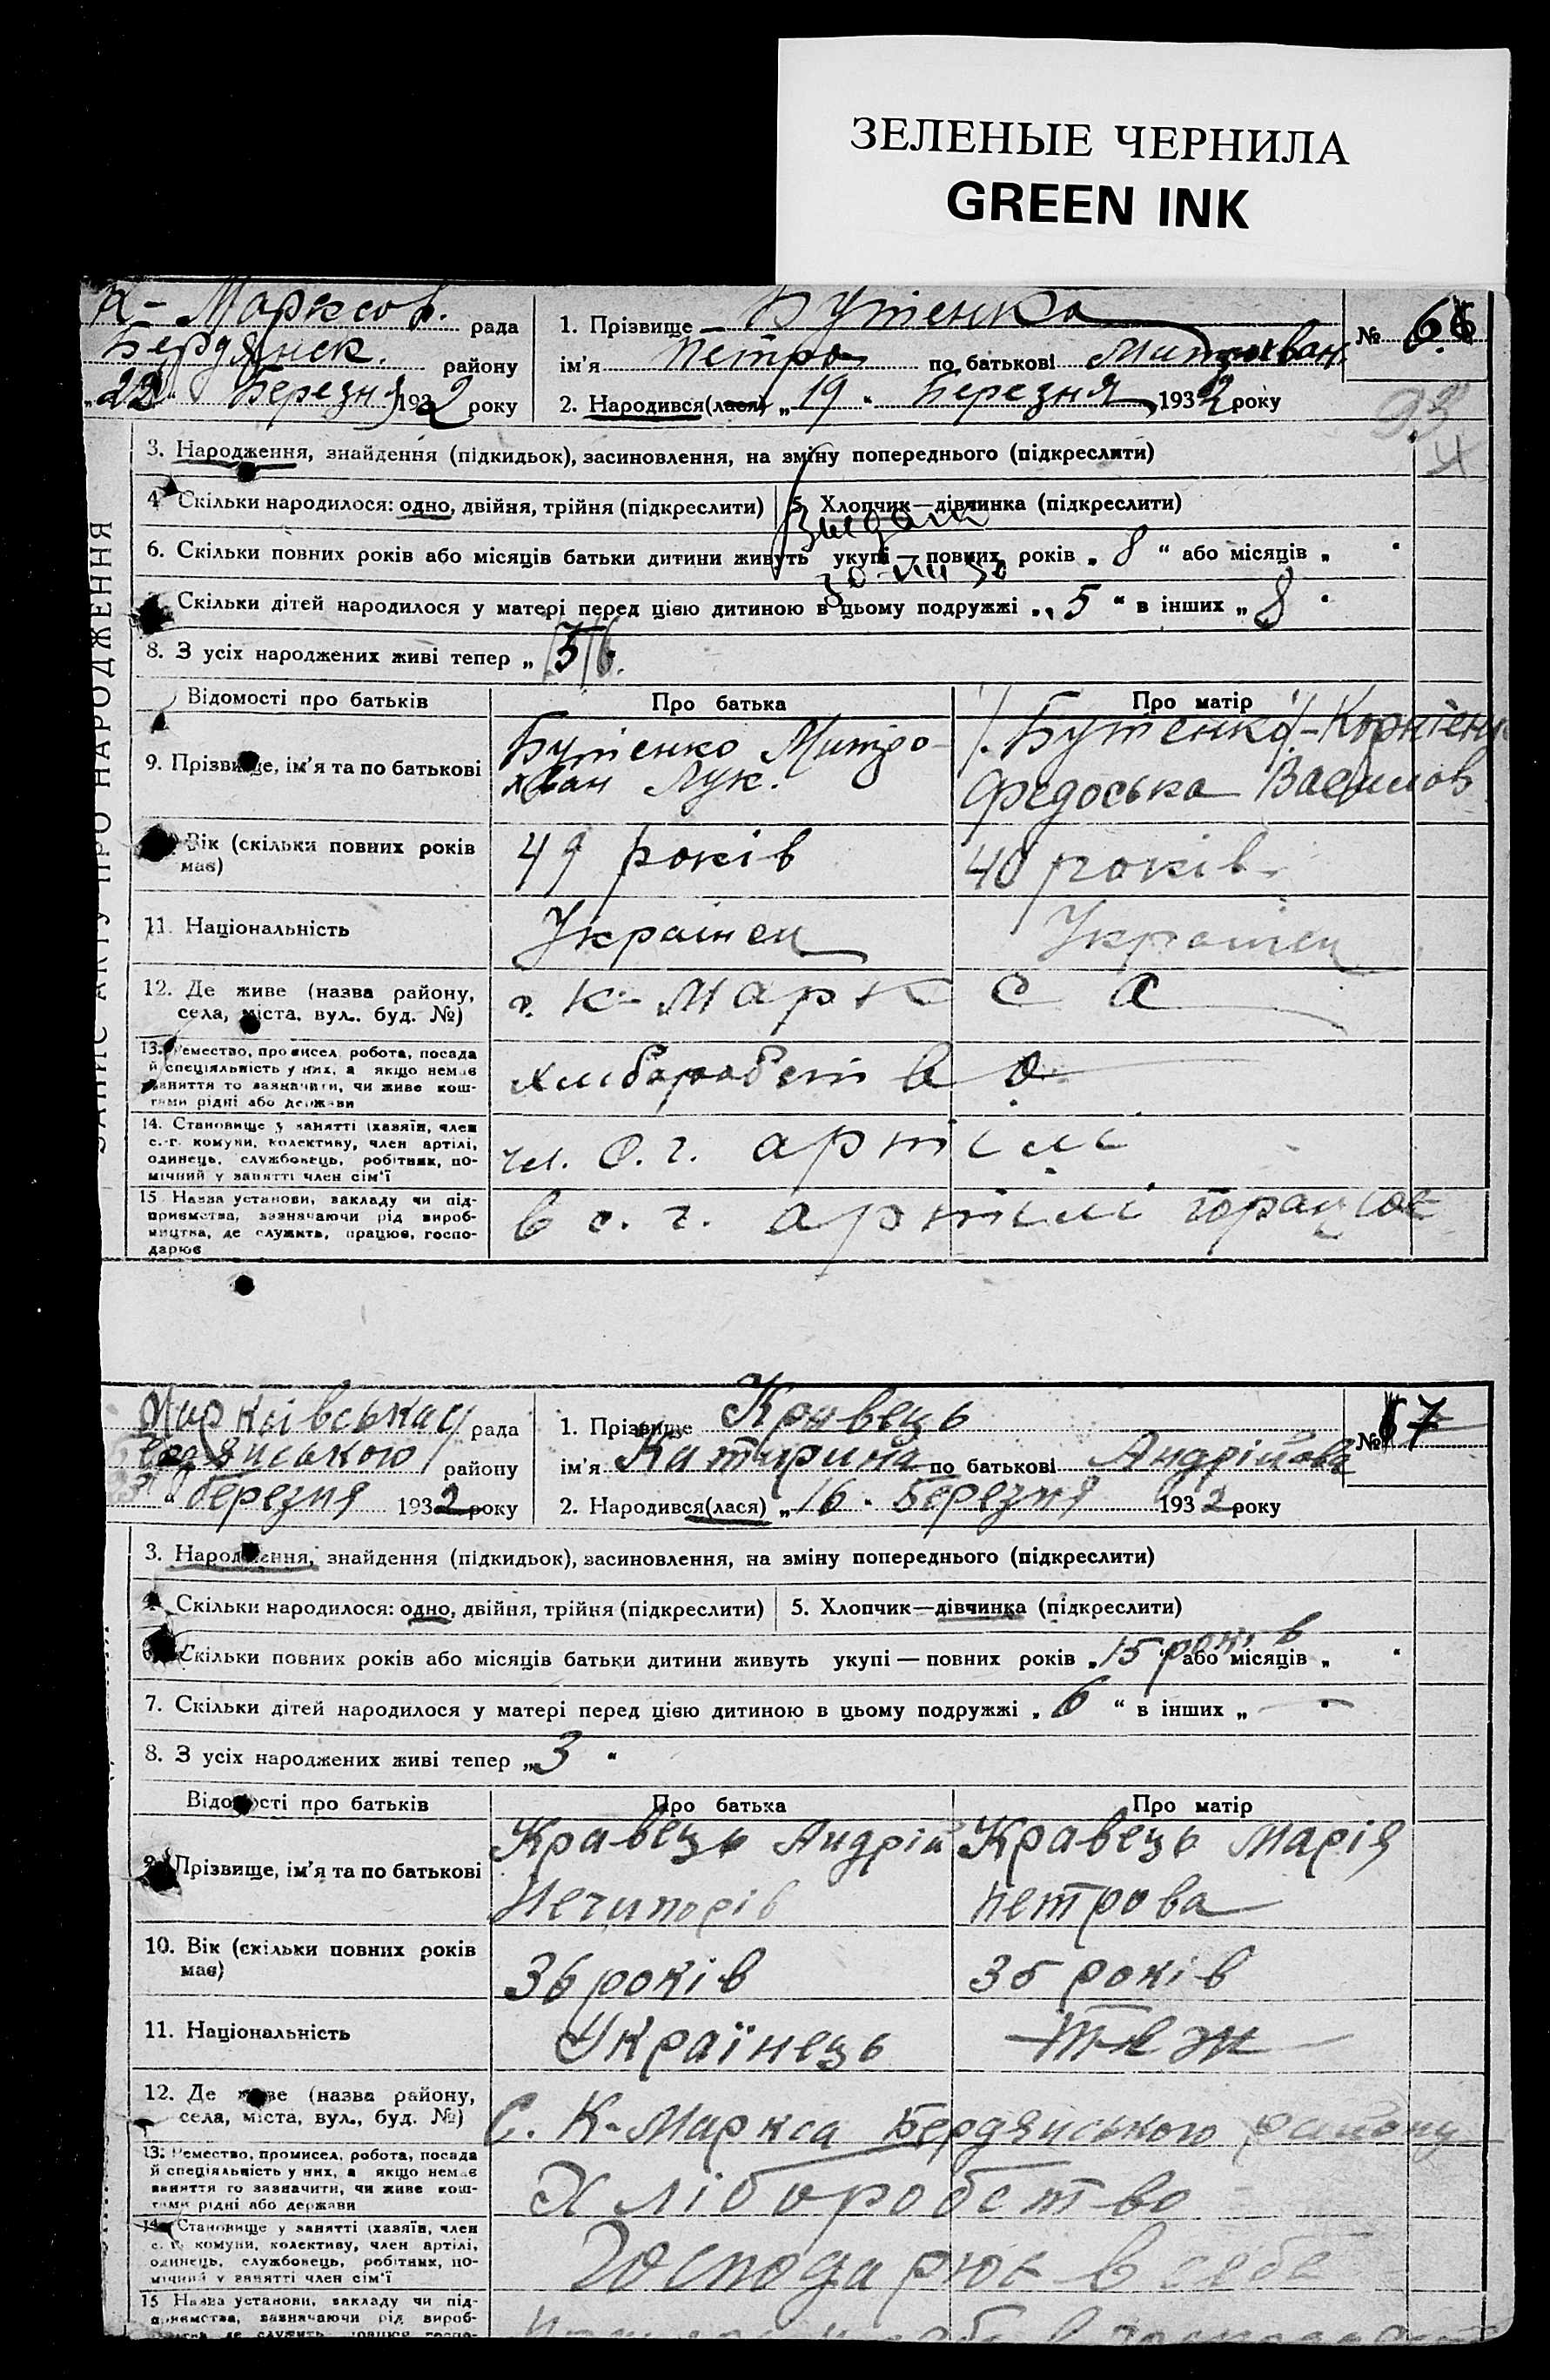 ЗЕЛЕНЫЕ ЧЕРНИЛА
GREEN INK
К-Марксов. рада
Бердянск. району
„22“ Березня 1932 року
1. Прізвище Бутенко
ім'я Петро по батькові Митрихван.
2. Народився(лася) „19“ Березня 1932 року
№ 66
ЗАПИС АКТУ ПРО НАРОДЖЕННЯ
3. Народження, знайдення (підкидьок), засиновлення, на зміну попереднього (підкреслити)
4. Скільки народилося: одно, двійня, трійня (підкреслити)
5. Хлопчик—дівчинка (підкреслити)
6. Скільки повних років або місяців батьки дитини живуть укупі — повних років „8“ або місяців „ “
7. Скільки дітей народилося у матері перед цією дитиною в цьому подружжі „5“ в інших „8“
8. З усіх народжених живі тепер „
Відомості про батьків
Про батька
Про матір
9. Прізвище, ім'я та по батькові
Бутенко Митро-
хван Лук.
/.Бутенко/.-Корнієнк
Федоська Васильов
10. Вік (скільки повних років має)
49 років
40 років
11. Національність
Українец
Українец
12. Де живе (назва району,
села, міста, вул., буд. №)
с. К-Маркса
13. Ремество, промисел, робота, посада
й спеціяльність у них, а якщо немає
заняття то зазначити, чи живе кош-
тами рідні або держави
хліборобство
14. Становище у занятті (хазяїн, член
с.-г. комуни, колективу, член артілі,
одинець, службовець, робітник, по-
мічний у занятті член сім'ї
чл. с. г. артілі
15. Назва установи, закладу чи під-
приємства, зазначаючи рід вироб-
ництва, де служить, працює, госпо-
дарює
в с. г. артілі працює
рада
Бердянського району
березня 1932 року
1. Прізвище Кравець
ім'я Катирина по батькові Андрійова
2. Народився(лася) „16“ Березня 1932 року
№ 67
3. Народження, знайдення (підкидьок), засиновлення, на зміну попереднього (підкреслити)
4. Скільки народилося: одно, двійня, трійня (підкреслити)
5. Хлопчик—дівчинка (підкреслити)
6. Скільки повних років або місяців батьки дитини живуть укупі — повних років „15 років“ або місяців „ “
7. Скільки дітей народилося у матері перед цією дитиною в цьому подружжі „6“ в інших „—“
8. З усіх народжених живі тепер „3“
Відомості про батьків
Про батька
Про матір
9. Прізвище, ім'я та по батькові
Кравець Андрій
Нечипорів
Кравець Марія
Петрова
10. Вік (скільки повних років має)
36 років
35 років
11. Національність
Українець
теж
12. Де живе (назва району,
села, міста, вул., буд. №)
С. К-Маркса Бердянського району
13. Ремество, промисел, робота, посада
й спеціяльність у них, а якщо немає
заняття то зазначити, чи живе кош-
тами рідні або держави
Хліборобство
14. Становище у занятті (хазяїн, член
с. г. комуни, колективу, член артілі,
одинець, службовець, робітник, по-
мічний у занятті член сім'ї
Господарює в себе
15 Назва установи, закладу чи під-
приємства, зазначаючи рід вироб-
ництва, де служить, працює, госпо-